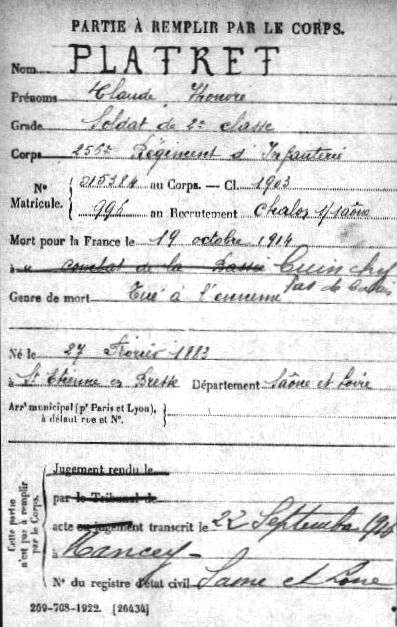 PARTIE À REMPLIR PAR LE CORPS.
Nom PLATRET
Prénoms Claude Honoré
Grade Soldat de 2e classe
Corps 255e Régiment d'Infanterie
N° Matricule. 015284 au Corps. — Cl. 1903
996 au Recrutement Chalon s/Saône
Mort pour la France le 19 octobre 1914
à combat de la Bassée Cuinchy
Pas de Calais
Genre de mort Tué à l'ennemi
Né le 27 Février 1883
à St Etienne en Bresse Département Saône et Loire
Arrt municipal (pr Paris et Lyon), à défaut rue et N°.
Cette partie n'est pas à remplir par le Corps.
Jugement rendu le
par le Tribunal de
acte ou jugement transcrit le 22 Septembre 1916
à Mancey
N° du registre d'état civil Saone et Loire
269-708-1922. [26434]